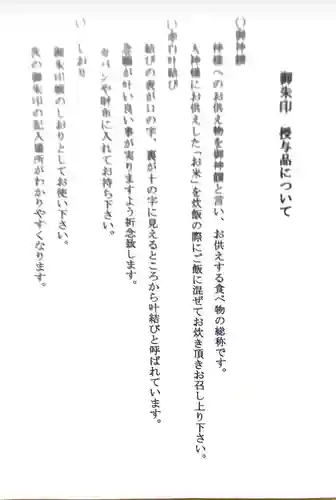 御朱印 授与品について
○御神饌
神様へのお供え物を御神饌と言い、お供えする食べ物の総称です。
人神様にお供えした「お米」を炊飯の際にご飯に混ぜてお炊き頂きお召し上り下さい。
叶結び
結びの表が口の字、裏が十の字に見えるところから叶結びと呼ばれています。
念願が叶い良い事が実りますよう祈念致します。
カバンや財布に入れてお持ち下さい。
しおり
御朱印帳のしおりとしてお使い下さい。
次の御朱印の記入場所がわかりやすくなります。